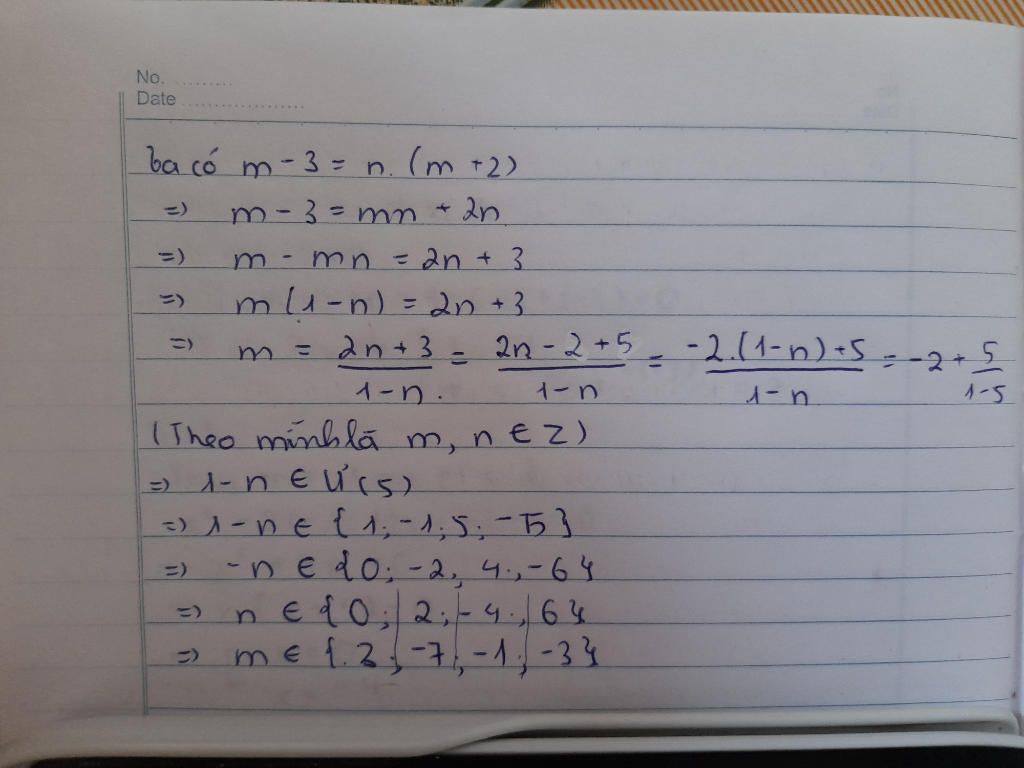 No. .........
Date ...................
Ta có m - 3 = n. (m + 2)
=> m - 3 = mn + 2n
=> m - mn = 2n + 3
=> m (1 - n) = 2n + 3
=> m = \frac{2n + 3}{1 - n.} = \frac{2n - 2 + 5}{1 - n} = \frac{-2.(1 - n) + 5}{1 - n} = -2 + \frac{5}{1 - 5}
(Theo mình là m, n ∈ Z)
=> 1 - n ∈ Ư(5)
=> 1 - n ∈ {1; -1; 5; -5}
=> -n ∈ {0; -2, 4; -6}
=> n ∈ {0; | 2; | -4; | 6}
=> m ∈ {3; | -7; | -1; | -3}